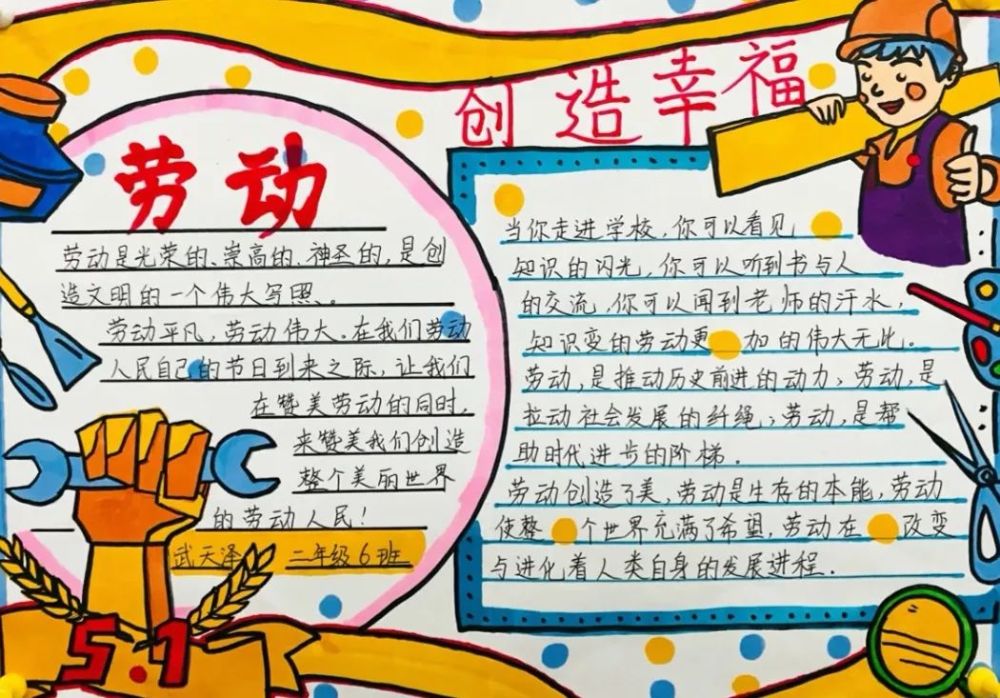 劳动
创造幸福
劳动是光荣的、崇高的、神圣的,是创
造文明的一个伟大写照、。
劳动平凡,劳动伟大.在我们劳动
人民自己的节日到来之际,让我们
在赞美劳动的同时,
来赞美我们创造
整个美丽世界
的劳动人民!
武天泽 二年级6班
5.1
当你走进学校,你可以看见
知识的闪光,你可以听到书与人
的交流,你可以闻到老师的汗水,
知识变的劳动更加的伟大无比。
劳动,是推动历史前进的动力;劳动,是
拉动社会发展的纤绳;劳动,是帮
助时代进步的阶梯.
劳动创造了美,劳动是生存的本能,劳动
使整个世界充满了希望,劳动在改变
与进化着人类自身的发展进程.